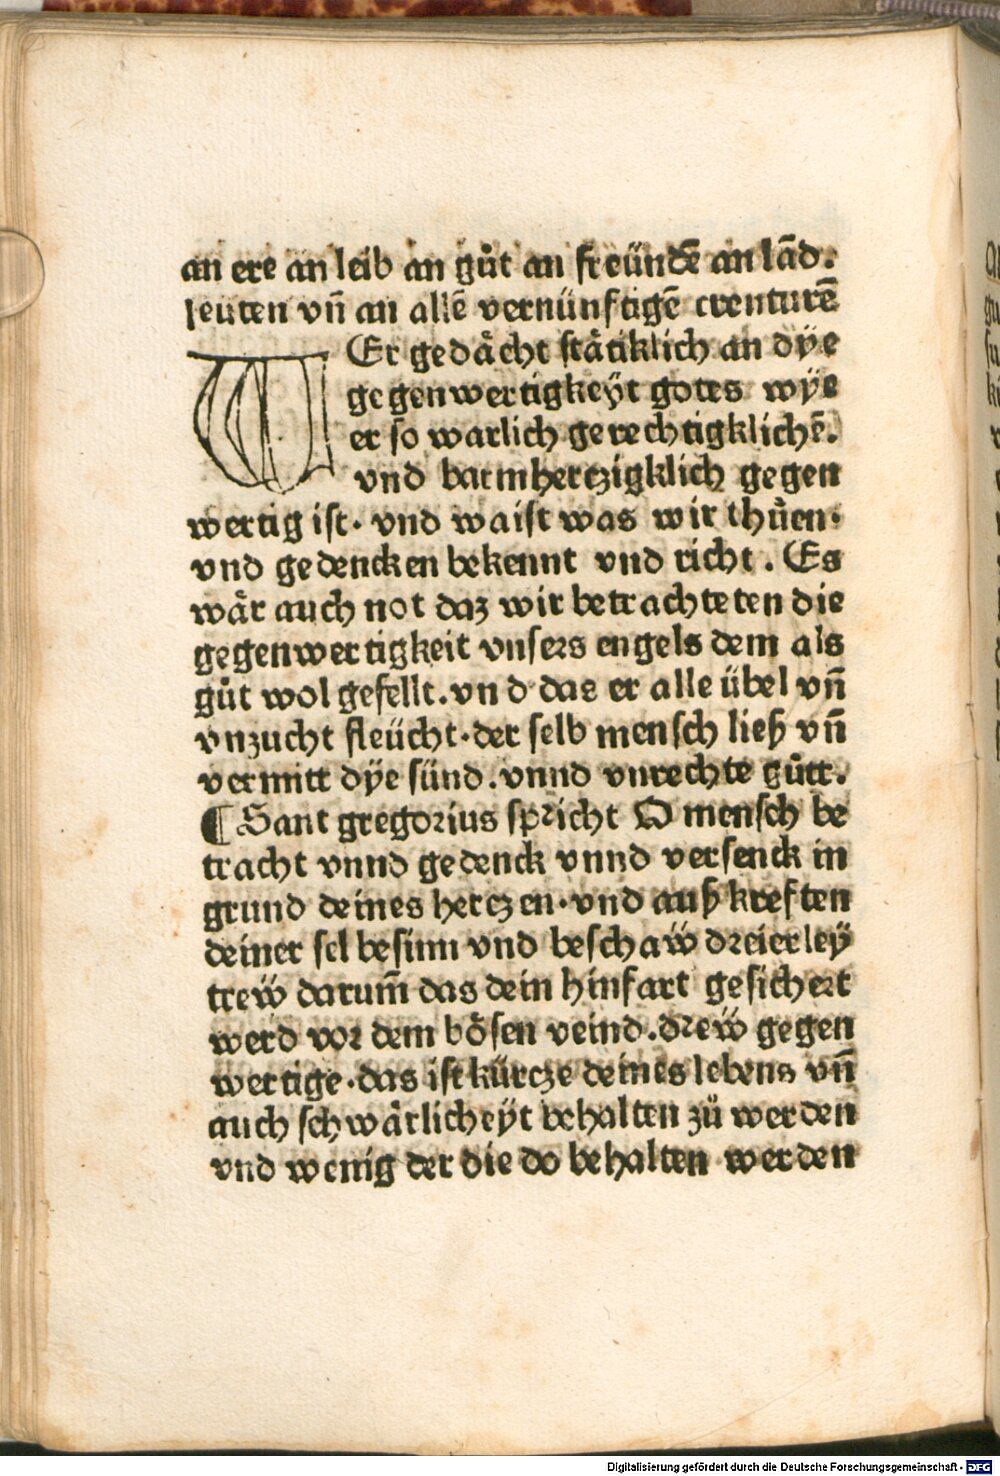 an ere an leib an gůt an freündē an lād.
leuten vn̄ an allē vernünftigē creuturē
WEr gedächt stätiklich an dÿe
gegenwertigkeÿt gotes wÿe
er so warlich gerechtigklichē.
vnd barmhertzigklich gegen
wertig ist. vnd waist was wir thůen.
vnd gedencken bekennt vnd richt. Es
wär auch not daz wir betrachteten die
gegenwertigkeit vnsers engels dem als
gůt wol gefellt. vnd das er alle übel vn̄
vnzucht fleücht. der selb mensch ließ vn̄
vermitt dÿe sünd. vnnd vnrechte gůtt.
¶ Sant gregorius spricht O mensch be
tracht vnnd gedenck vnnd versenck in
grund deines hertzen. vnd auß kreften
deiner sel besinn vnd beschaẅ dreierleÿ
treẅ darum̄ das dein hinfart gesichert
werd vor dem bösen veind. dreẅ gegen
wertige. das ist kürtze deines lebens vn̄
auch schwärlicheÿt behalten zü werden
vnd wenig der die do behalten werden
Digitalisierung gefördert durch die Deutsche Forschungsgemeinschaft - DFG